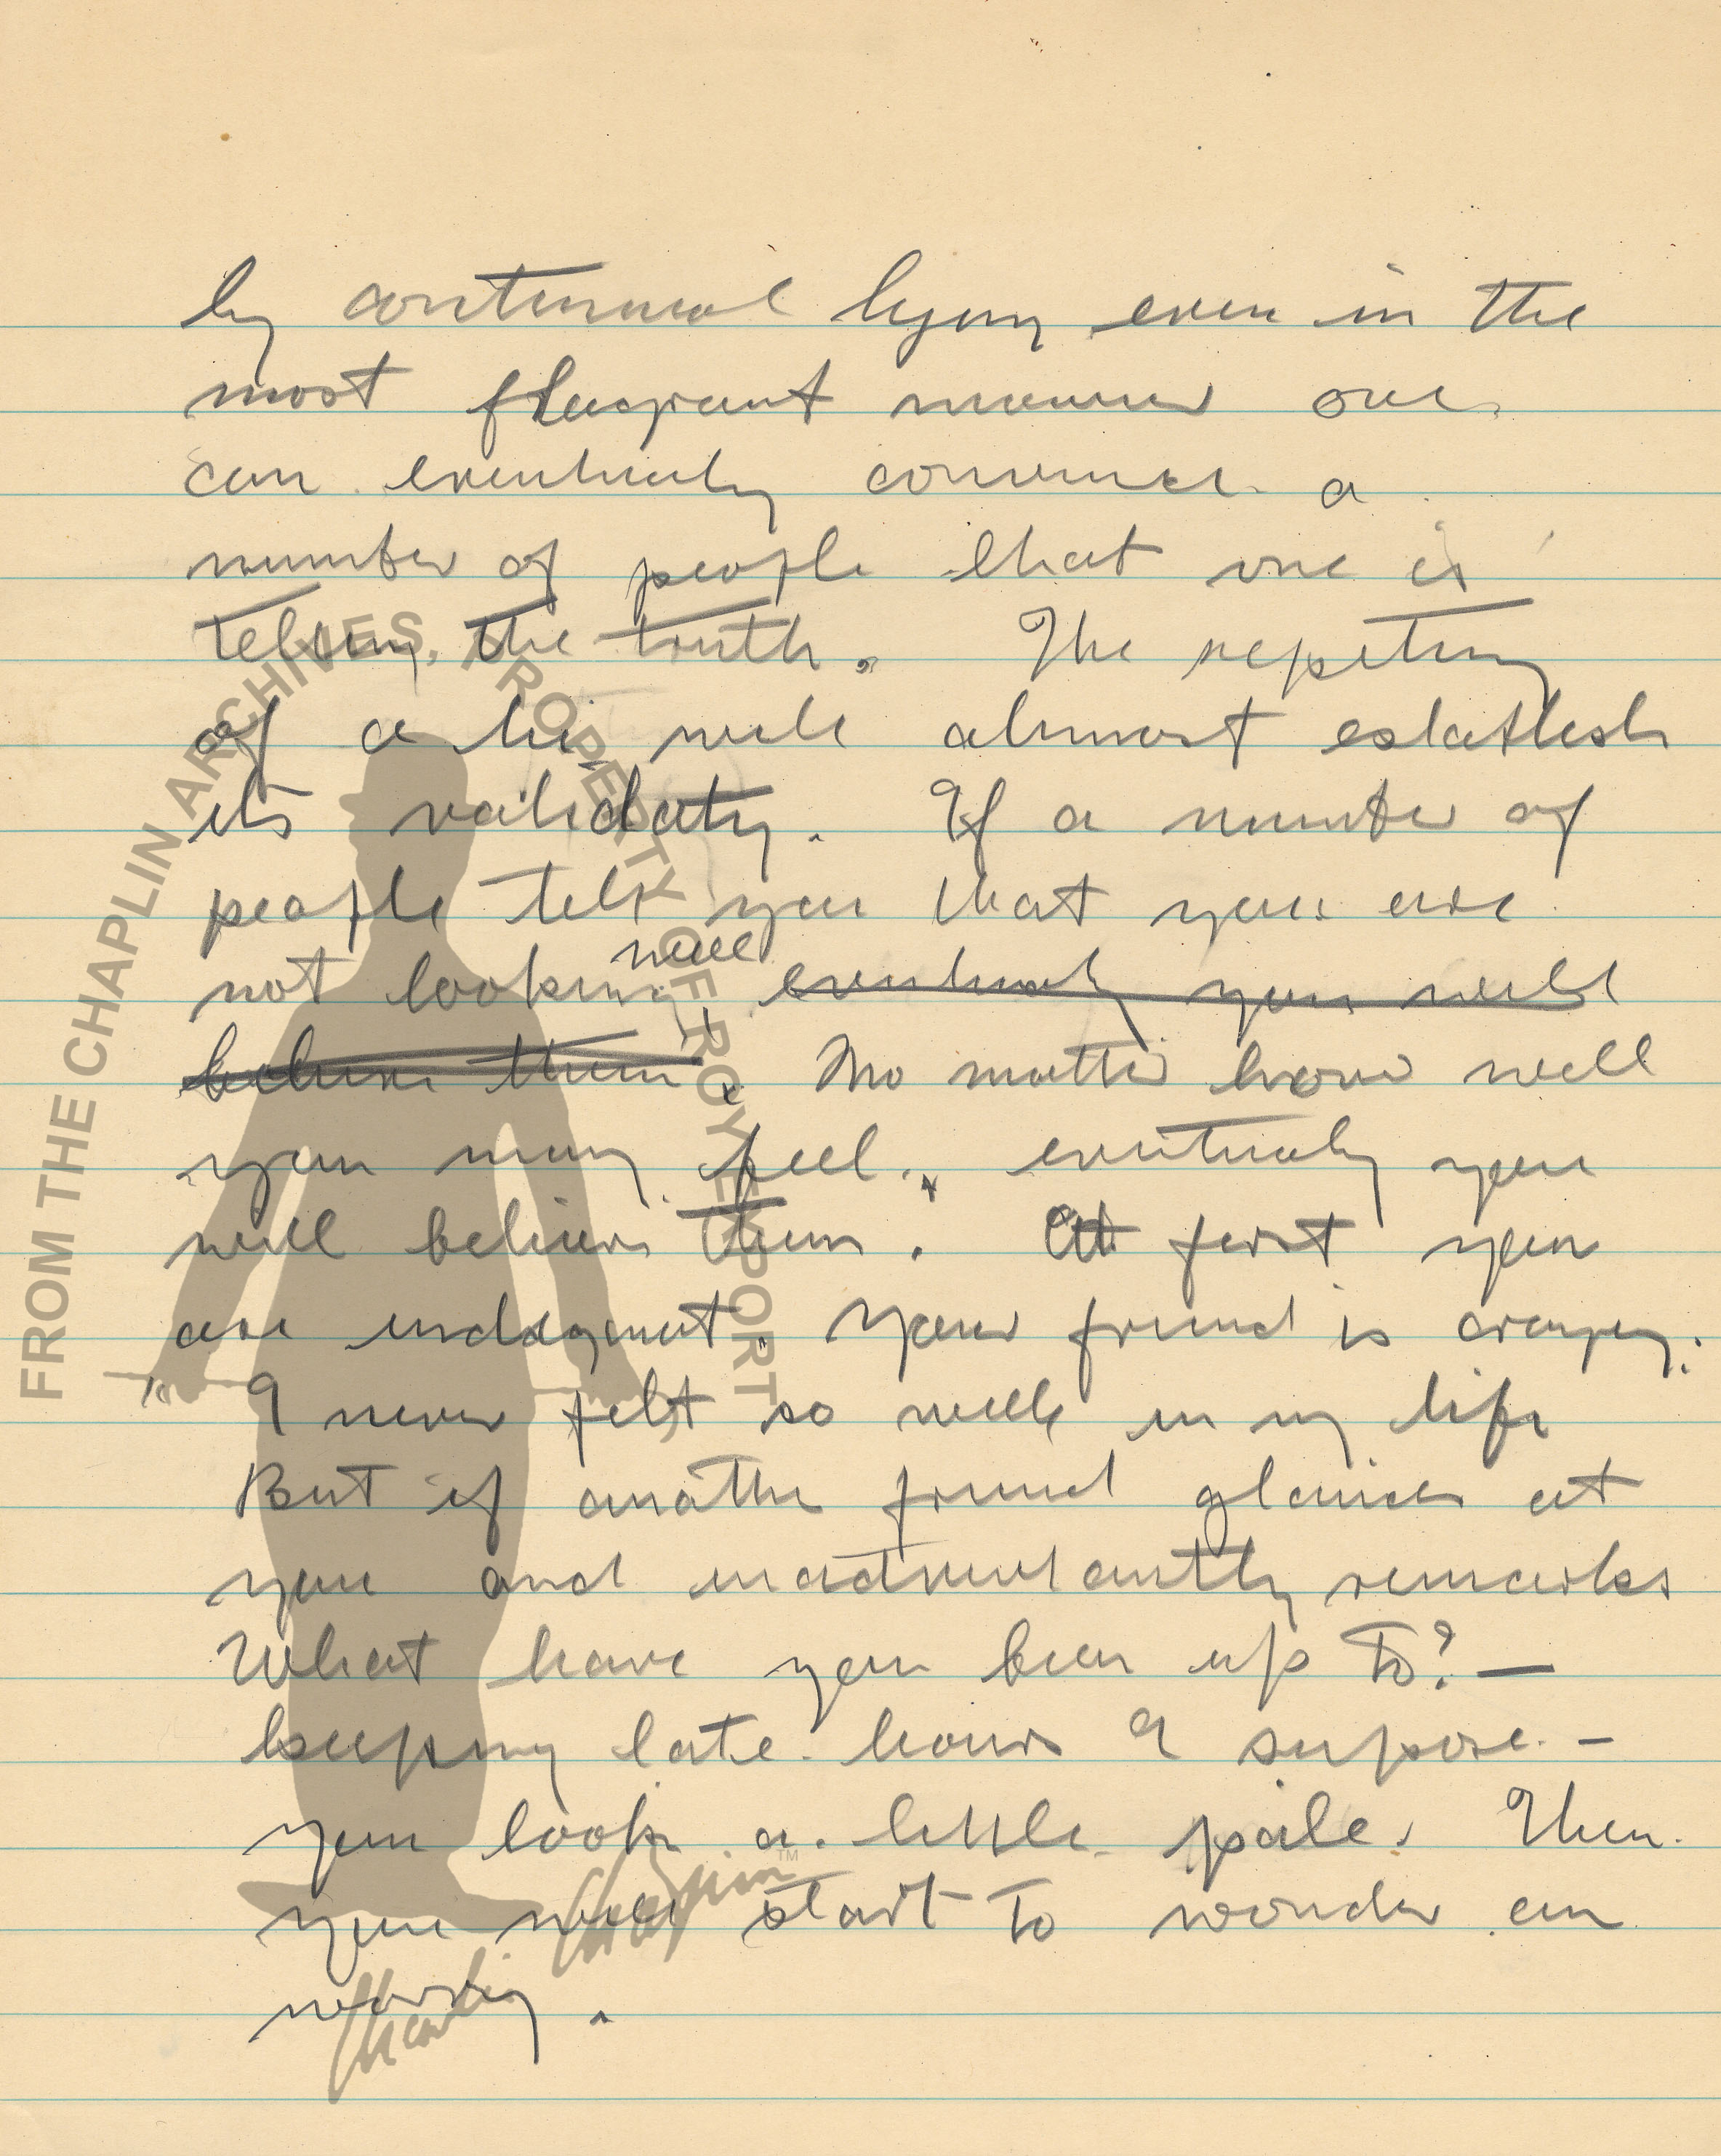 by continual lying even in the
most flagrant manner one
can eventualy convince a
number of people that one is
telling, the truth. The repeting
of a lie will almost establish
its validaty. If a number of
people tell you that you are
not looking well eventualy you will
believe them. No matter how well
you may feel, eventualy you
will believe them. At first you
are indagnant. Your friend is crazy:
"I never felt so well in my life
But if anothe friend glances at
you and inadvertantly remarks
What have you been up to? —
keeping late hours I supose. —
you look a little pale. Then
you will start to wonder an
worry.
FROM THE CHAPLIN ARCHIVES, PROPERTY OF ROY EXPORT
Charlie Chaplin™